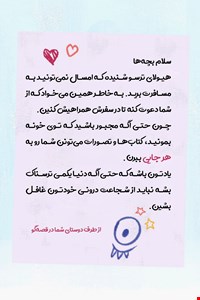 سلام بچه‌ها
هیولای ترسو شنیده که امسال نمی‌تونید به
مسافرت برید. به خاطر همین می‌خواد که از
شما دعوت کنه تا در سفرش همراهیش کنین.
چون حتی اگه مجبور باشید که توی خونه
بمونید، کتاب‌ها و تصورات می‌تونن شما رو به
هر جایی ببرن.
یادتون باشه که حتی اگه دنیا یکمی ترسناک
بشه نباید از شجاعت درونی خودتون غافل
بشین.
از طرف دوستان شما در قصه‌گو